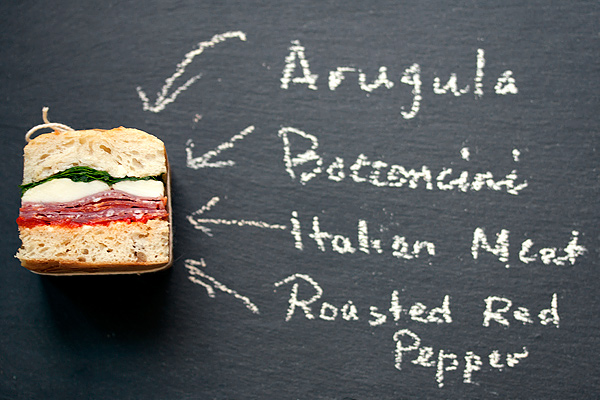 Arugula
Bocconcini
Italian Meat
Roasted Red
Pepper